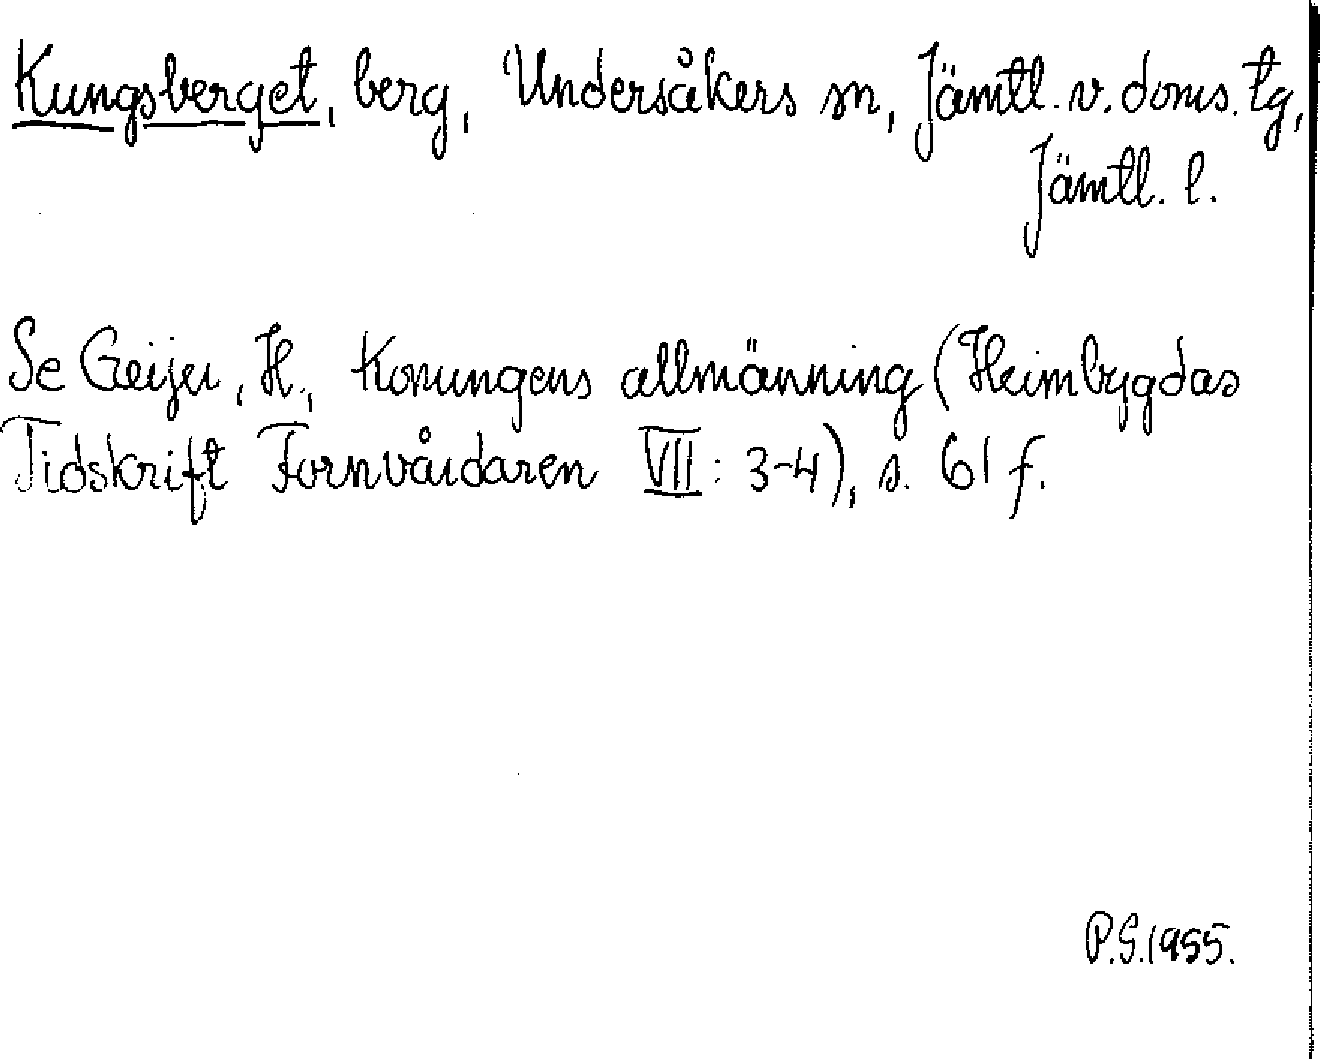 Kungsberget, berg, Undersåkers sn, Jämtl. v. doms. tg,
Jämtl. l.
Se Geijer, H., Konungens allmänning (Heimbygdas
Tidskrift Fornvårdaren VII: 3-4), s. 61 f.
P.S. 1955.